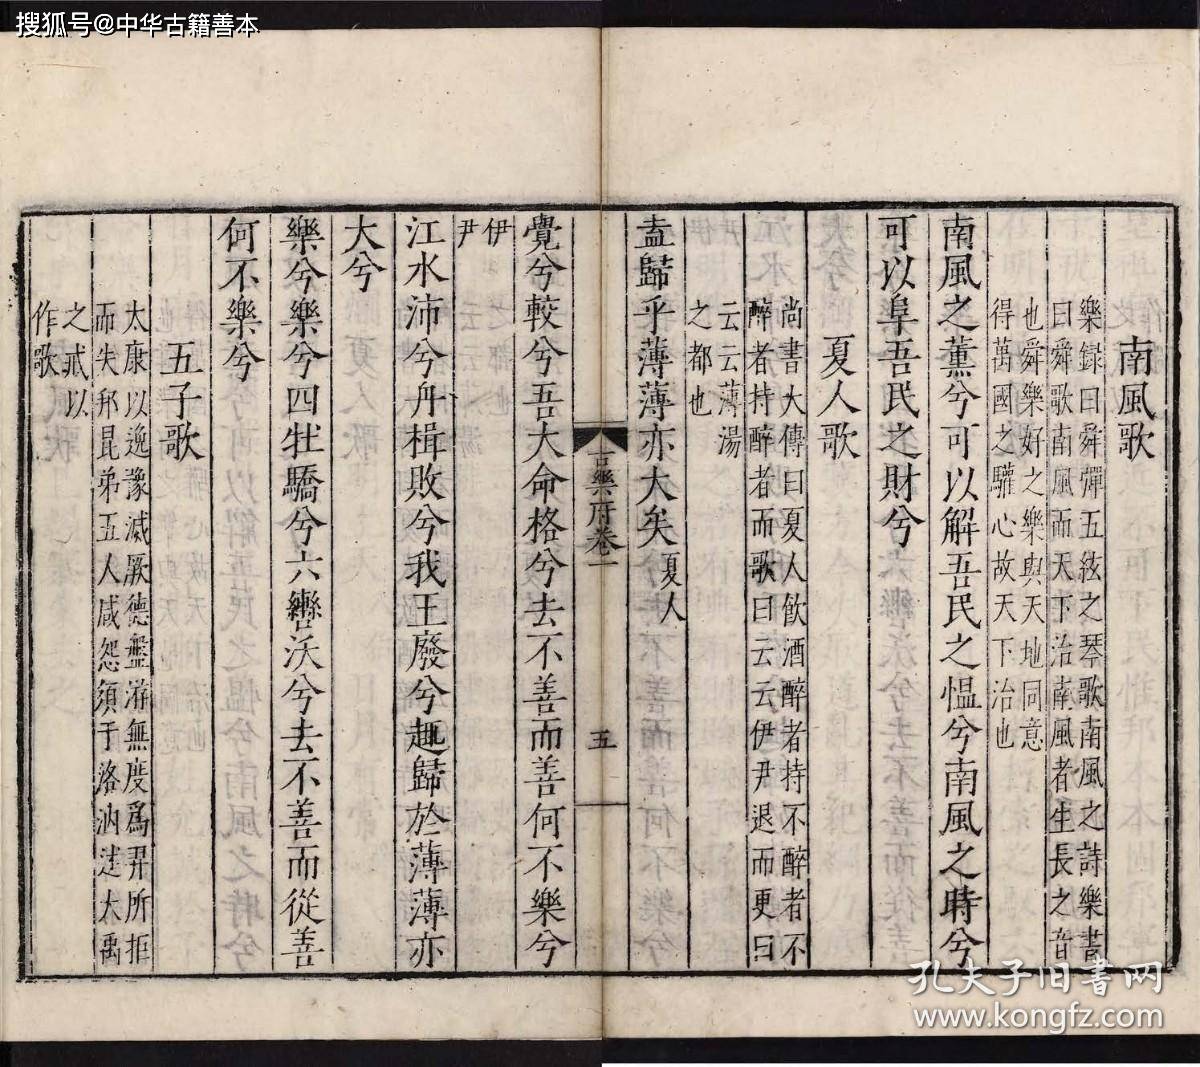 搜狐号@中华古籍善本
南風歌
樂録曰舜彈五絃之琴歌南風之詩樂書
曰舜歌南風而天下治南風者生長之音
也舜樂好之樂與天地同意
得萬國之驩心故天下治也
南風之薰兮可以解吾民之愠兮南風之時兮
可以阜吾民之財兮
夏人歌
尚書大傳曰夏人飲酒醉者持不醉者不
醉者持醉者而歌曰云云伊尹退而更曰
云云薄湯
之都也
盍歸乎薄薄亦大矣夏人
古樂府卷一
五
覺兮較兮吾大命格兮去不善而善何不樂兮
伊
尹
江水沛兮舟楫敗兮我王廢兮趣歸於薄薄亦
大兮
樂兮樂兮四牡驕兮六轡沃兮去不善而從善
何不樂兮
五子歌
太康以逸豫滅厥德盤游無度爲羿所拒
而失邦昆弟五人咸怨須于洛汭述大禹
之戒以
作歌
孔夫子旧书网
www.kongfz.com